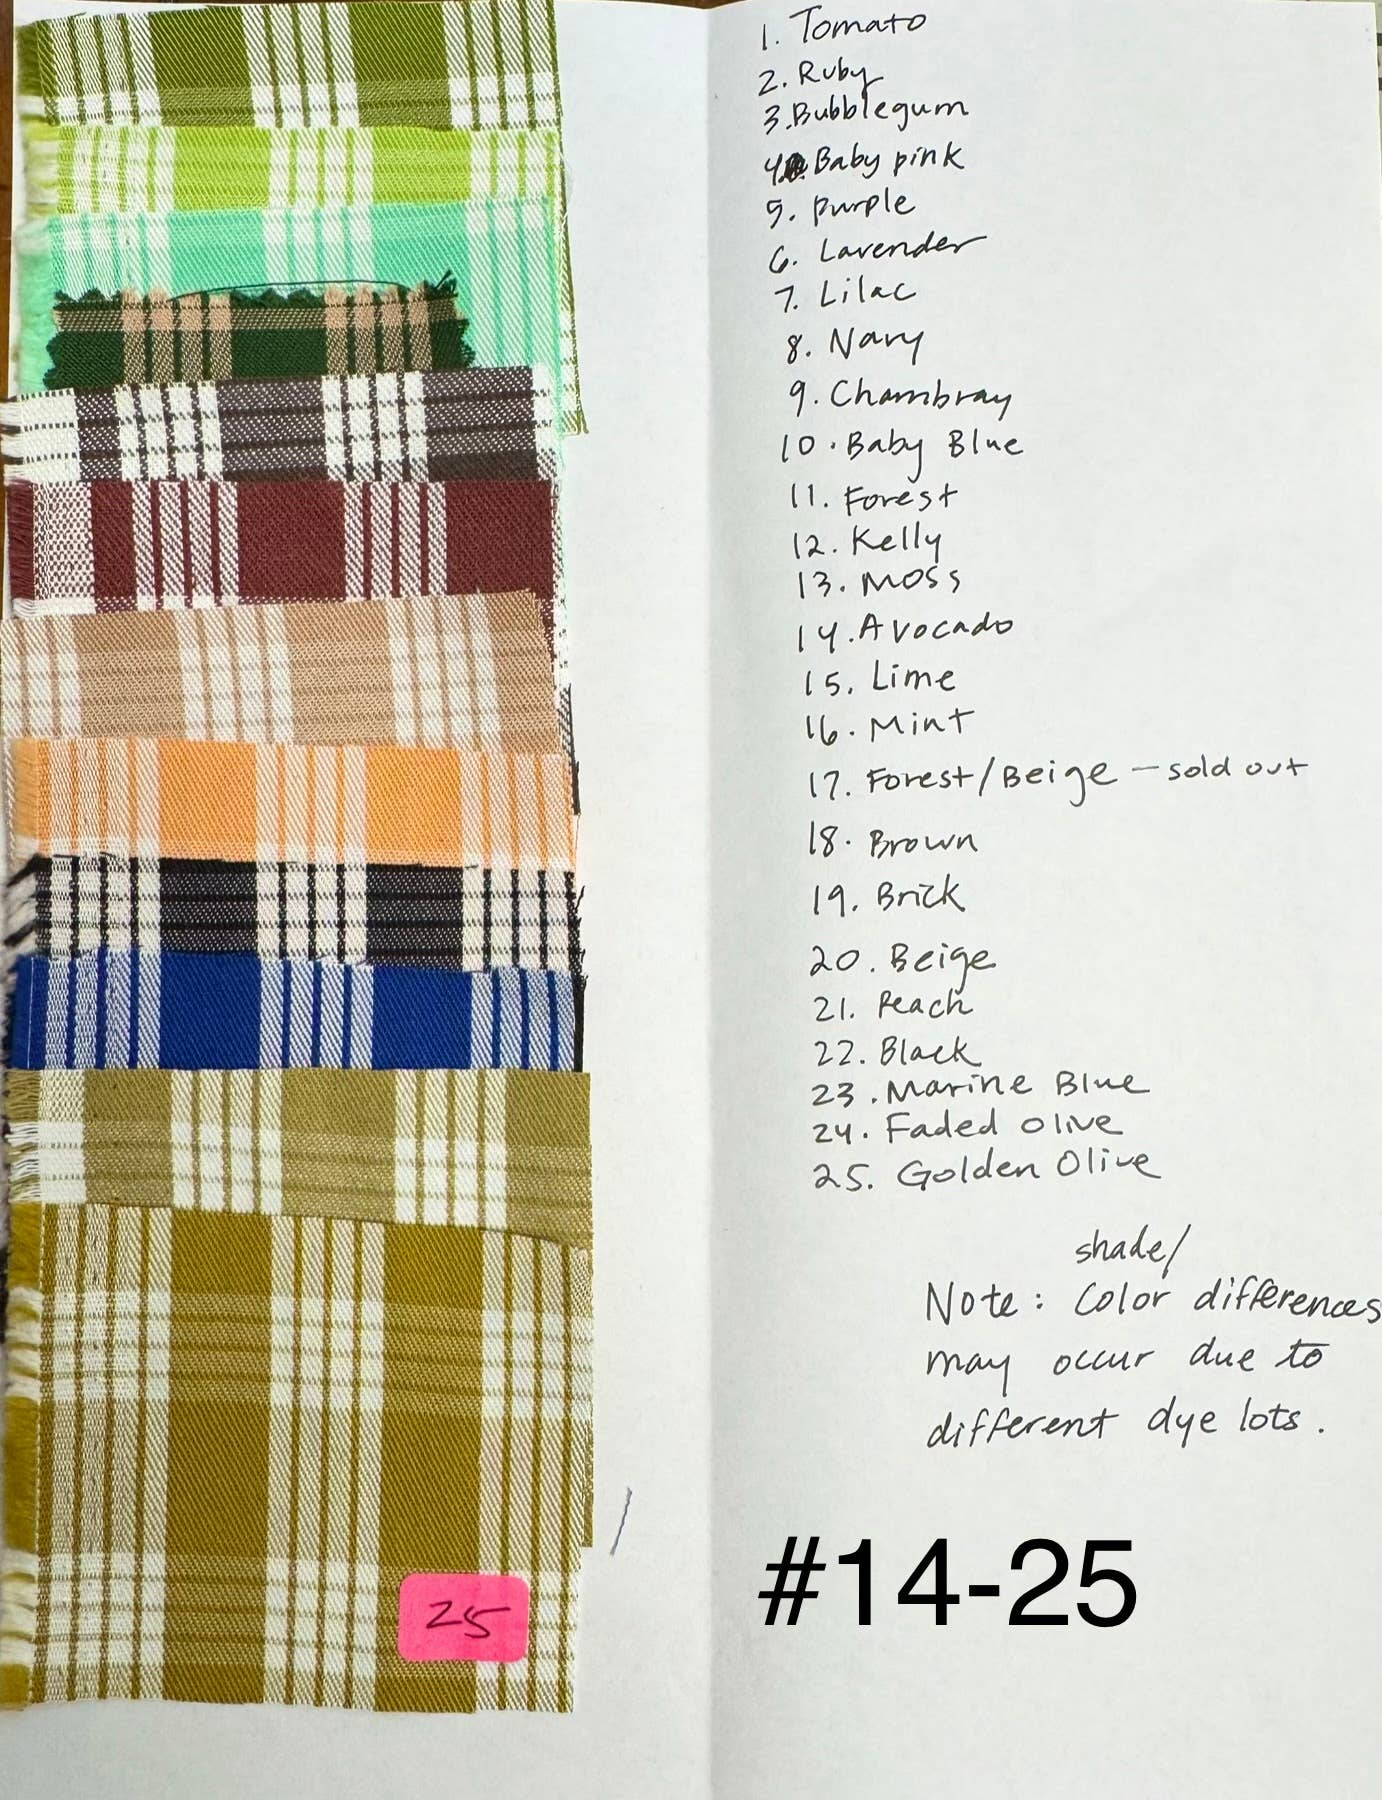 1. Tomato
2. Ruby
3. Bubblegum
4. Baby pink
5. purple
6. Lavender
7. Lilac
8. Navy
9. Chambray
10. Baby Blue
11. Forest
12. Kelly
13. Moss
14. Avocado
15. Lime
16. Mint
17. Forest/Beige - sold out
18. Brown
19. Brick
20. Beige
21. Peach
22. Black
23. Marine Blue
24. Faded Olive
25. Golden Olive
shade/
Note: Color differences
may occur due to
different dye lots.
#14-25
25